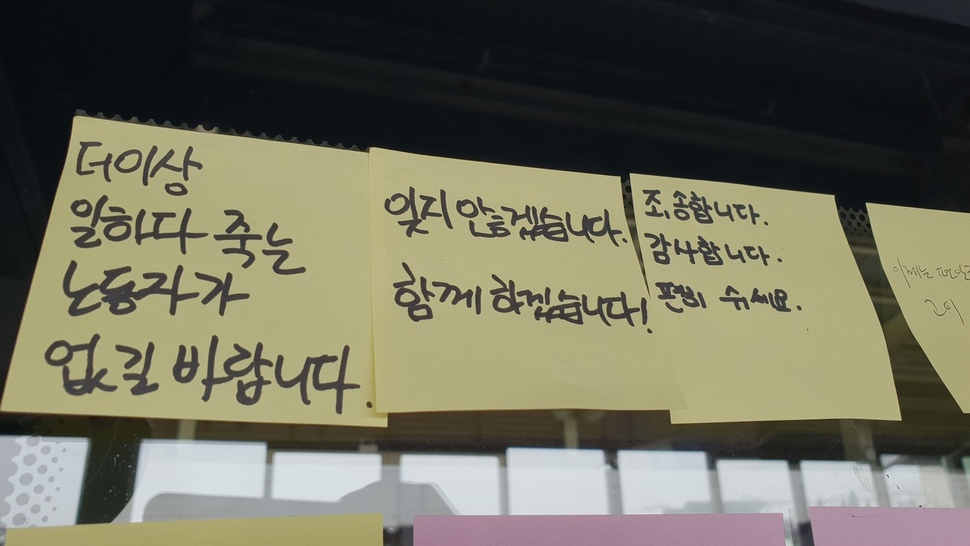 더이상
일하다 죽는
노동자가
없길 바랍니다.
잊지 않겠습니다.
함께 하겠습니다!
죄송합니다.
감사합니다.
편히 쉬세요.
이제는